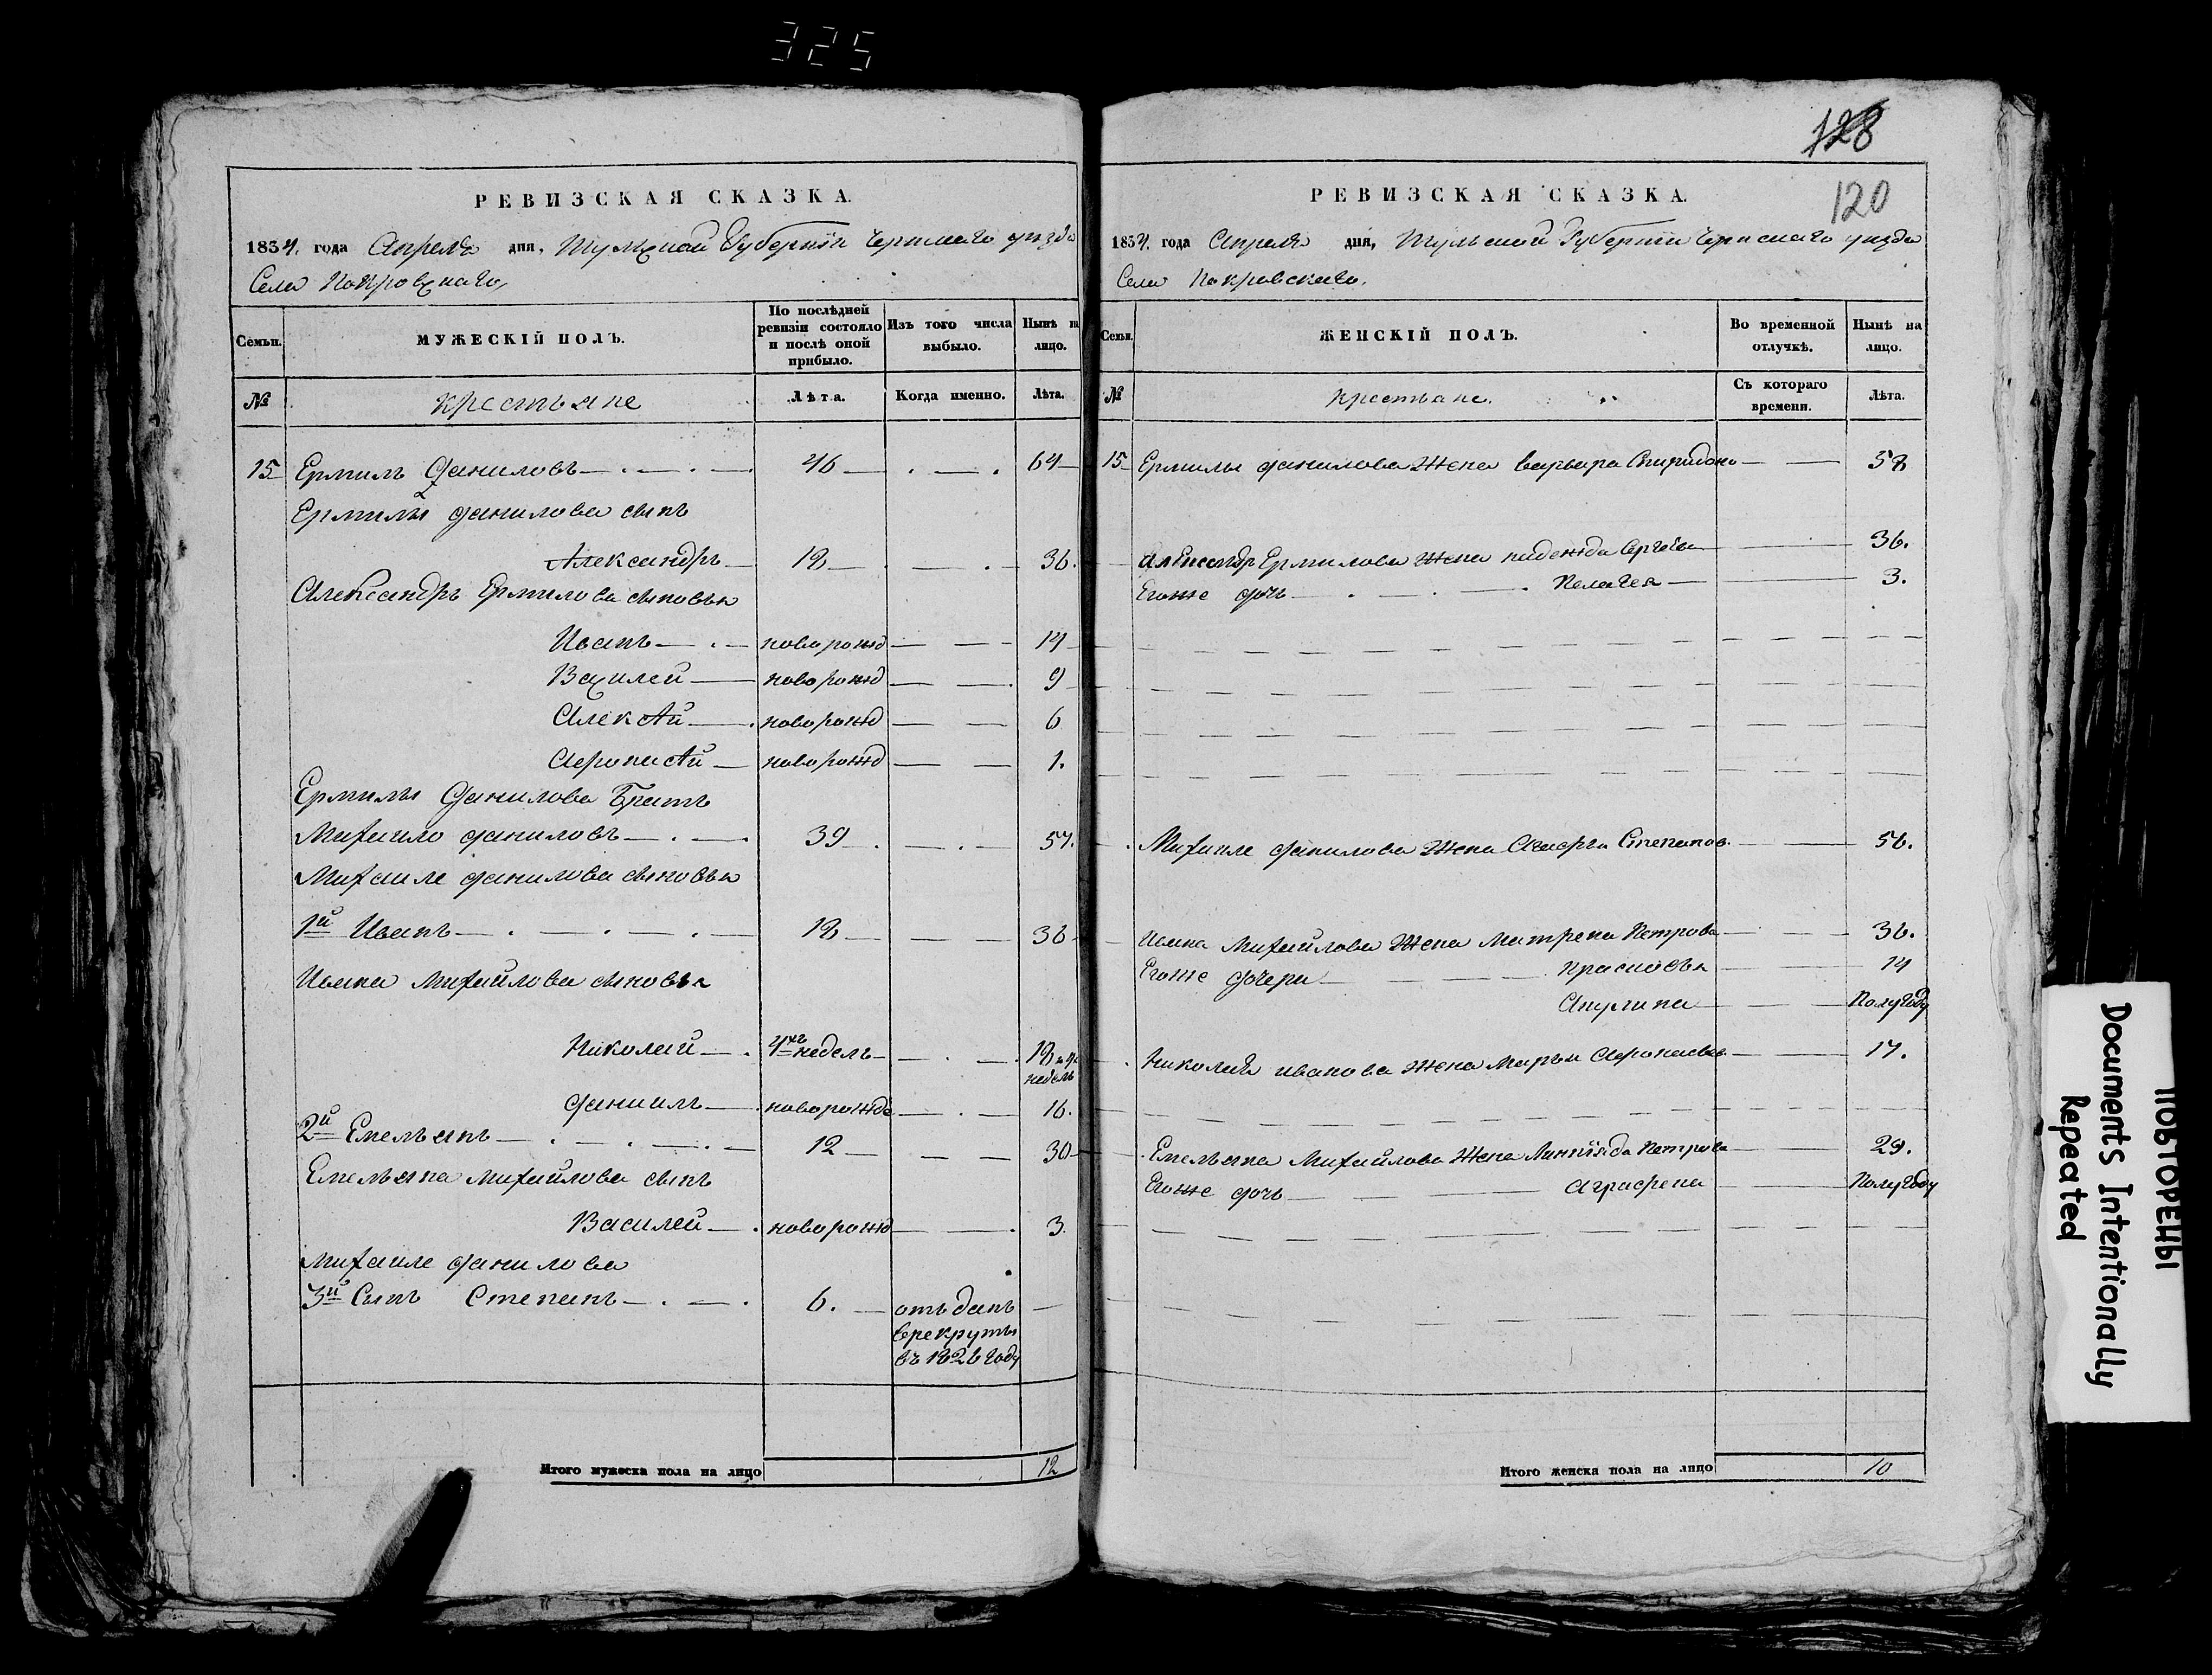 325
РЕВИЗСКАЯ СКАЗКА.
1834. года Апреля дня, Тульской Губернiи Чернскаго уезда
Села Покровскаго,
Семьи. МУЖЕСКIЙ ПОЛЪ. По послѣдней ревизiи состояло и послѣ оной прибыло. Изъ того числа выбыло. Нынѣ на лицо.
№ крестьяне Лѣта. Когда именно. Лѣта.
15 Ермилъ Даниловъ 46 64
Ермилы Данилова сынъ
Александръ 18 36.
Александръ Ермилова сыновья
Иванъ новорожд 14
Василей новорожд 9
Алексѣй новорожд 6
Аѳонасѣй новорожд 1.
Ермилы Данилова Братъ
Михаило Даниловъ 39 57.
Михаиле Данилова сыновья
1й Иванъ 18 36
Ивана Михайлова сыновья
Николай 4хъ недель 18 и 4 недель
Данiилъ новорожде 16.
2й Емельянъ 12 30
Емельяна Михайлова сынъ
Василей новорожд 3
Михаиле Данилова
3й Сынъ Степанъ 6. отъданъ
врекруты
въ 1826 году
Итого мужеска пола на лицо 12
128
120
РЕВИЗСКАЯ СКАЗКА.
1834. года Апреля дня, Тульской Губернiи Чернскаго уезда
Села Покровскаго.
Семьи. ЖЕНСКIЙ ПОЛЪ. Во временной отлучкѣ. Нынѣ на лицо.
№ крестьяне. Съ котораго времени. Лѣта.
15 Ермилы Данилова Жена варвара Спиридоно 58
Александр Ермилова Жена надежда Сергѣева 36.
Егоже дочь Пелагея 3.
Михаиле Данилова Жена Агаѳья Степанов. 56.
Ивана Михайлова Жена Матрена Петрова 36.
Егоже дочери Прасковья 14
Акулина Полугоду
Николая иванова Жена Марья Аѳонасьев 17.
Емельяна Михайлова Жена Петрова 29.
Егоже дочь Аграфена Полугоду
Итого женска пола на лицо 10
ПОВТОРЕНЫ
Documents Intentionally
Repeated